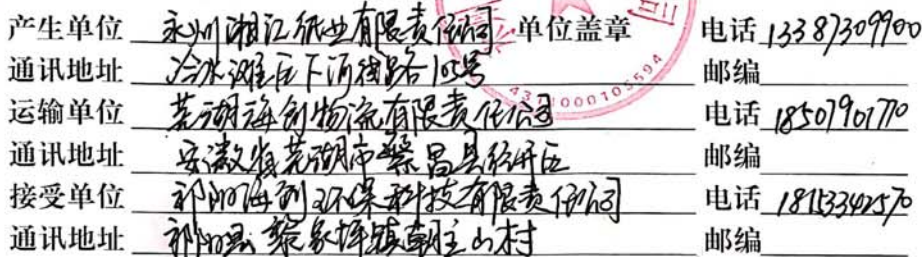 产生单位 永州湘江纸业有限责任公司 单位盖章 电话 13387309900
通讯地址 冷水滩区下河线路105号 邮编
运输单位 芜湖海创物流有限责任公司 电话 18507901770
通讯地址 安徽省芜湖市繁昌县经开区 邮编
接受单位 祁阳海创环保科技有限责任公司 电话 18153342570
通讯地址 祁阳县黎家坪镇朝主山村 邮编